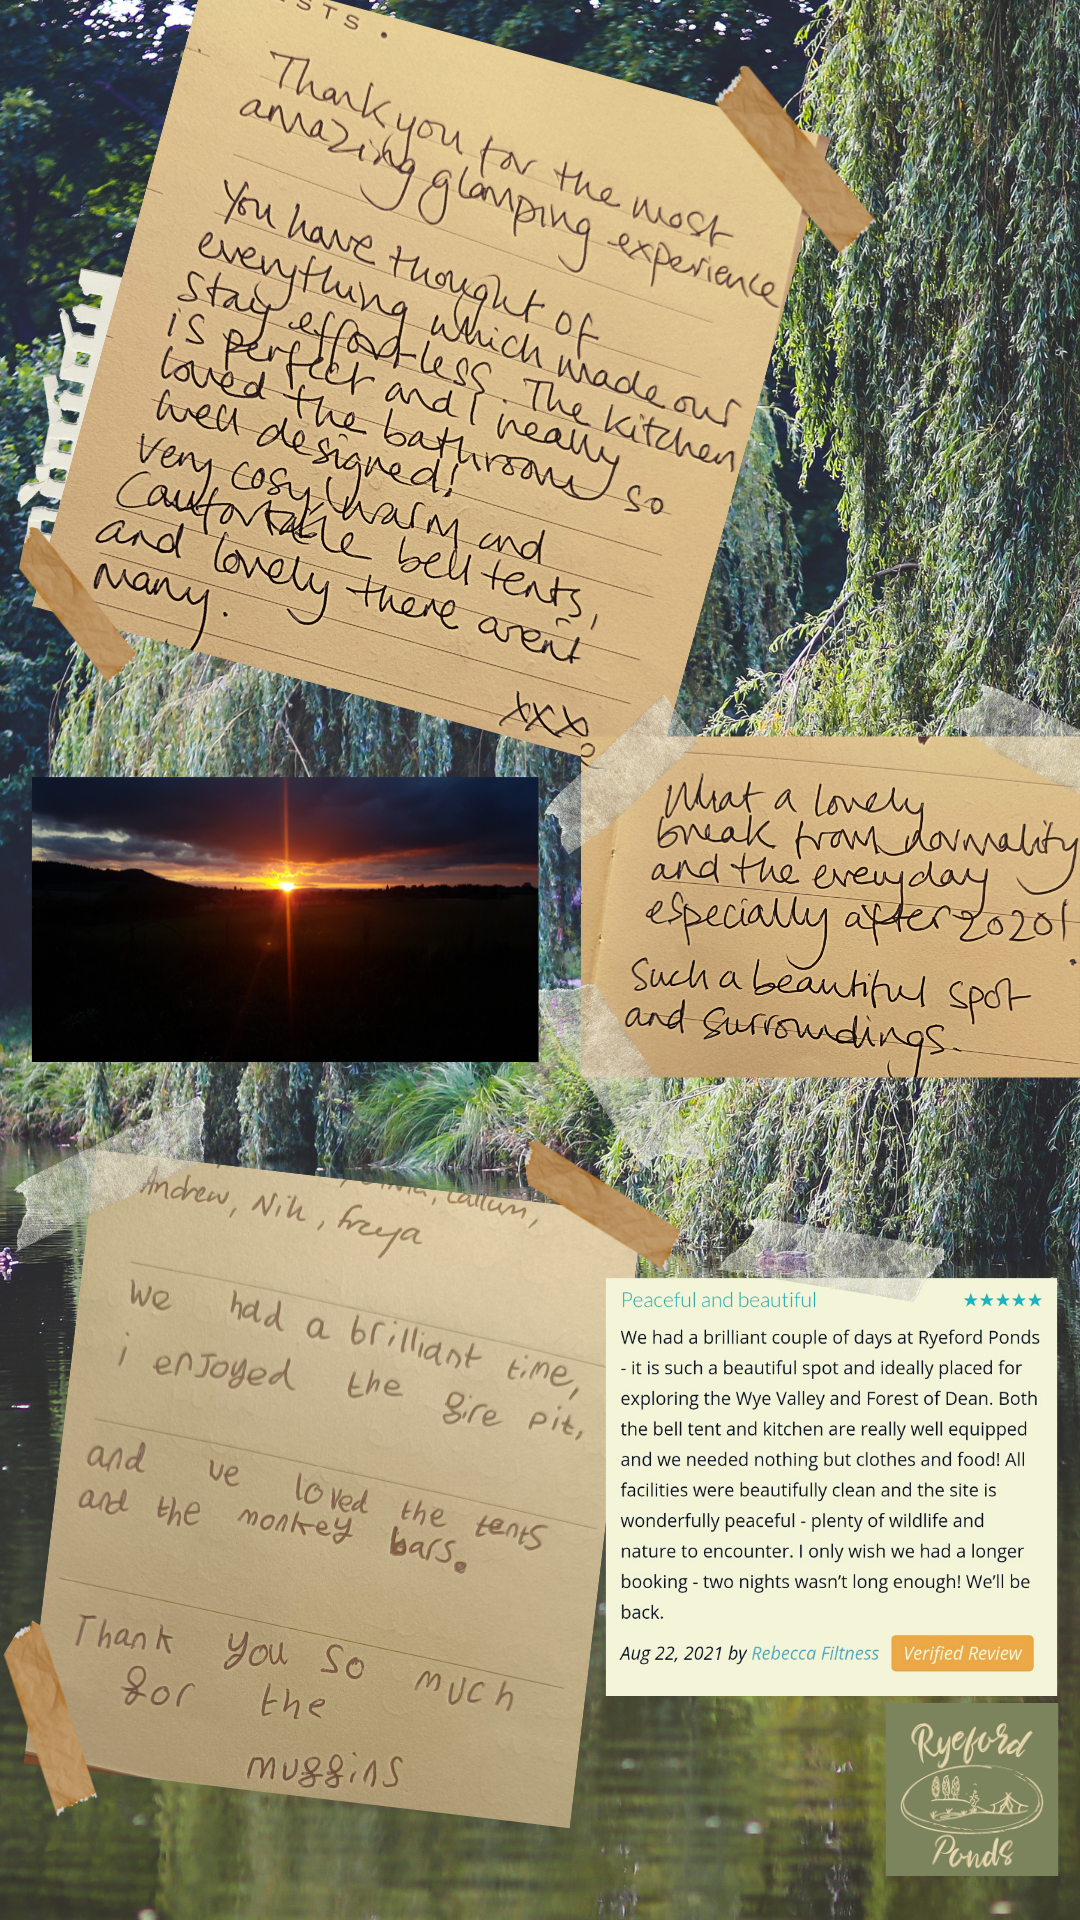 STS.
Thank you for the most
amazing glamping experience
You have thought of
everything which made our
stay effortless. The kitchen
is perfect and I really
loved the bathrooms so
well designed!
Very cosy, warm and
Comfortable bell tents,
and lovely there aren't
many.
xxx
What a lovely
break from normality
and the everyday
especially after 2020!
Such a beautiful spot
and surroundings.
Callum,
Andrew, Nik, Freya
We had a brilliant time,
i enjoyed the fire pit,
and we loved the tents
and the monkey bars.
Thank you so much
for the
muffins
Peaceful and beautiful ★★★★★
We had a brilliant couple of days at Ryeford Ponds
- it is such a beautiful spot and ideally placed for
exploring the Wye Valley and Forest of Dean. Both
the bell tent and kitchen are really well equipped
and we needed nothing but clothes and food! All
facilities were beautifully clean and the site is
wonderfully peaceful - plenty of wildlife and
nature to encounter. I only wish we had a longer
booking - two nights wasn't long enough! We'll be
back.
Aug 22, 2021 by Rebecca Filtness Verified Review
Ryeford
Ponds